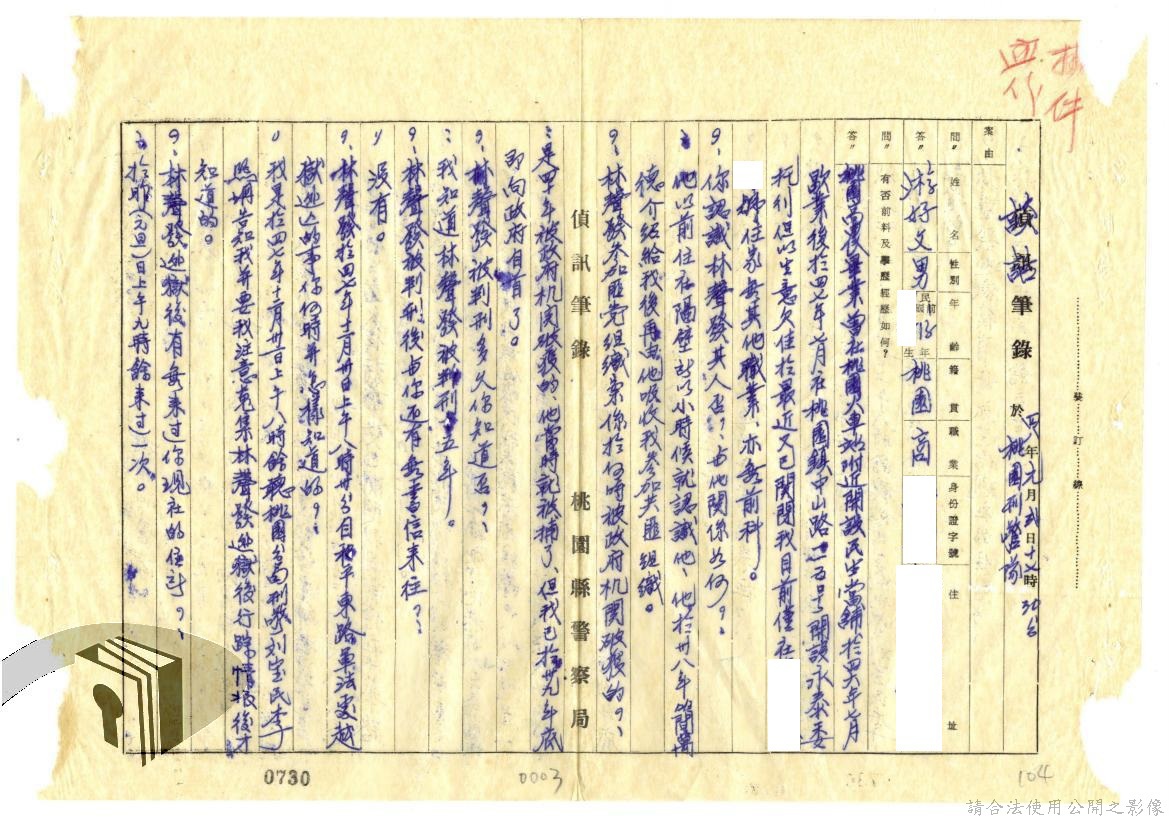 附件
談話筆錄 於 四八年元月弍日十七時30分 桃園刑警隊
案由
問〃 姓名 性別 年齡 籍貫 職業 身份證字號 住址
答〃 游好文 男 民國前 年生 桃園 商
問〃 有否前科及學歷經歷如何？
答〃 桃園高農畢業曾在桃園火車站附近開設民生當舖於四六年七月
歇業後於四七年七月在桃園鎮中山路一百号開設永泰委
托行但以生意欠佳於最近又已関閉我目前僅在
號住家無其他職業、亦無前科。
你認識林聲發其人否？與他関係如何？
他以前住在隔壁所以小時候就認識他、他於卅八年簡萬
德介紹給我後再由他吸收我參加共匪組織。
林聲發參加匪党組織案係於何時被政府机関破獲的？
是四十年被政府机関破獲的、他當時就被捕了、但我已於卅九年底
即向政府自首了。
偵訊筆錄 桃園縣警察局
林聲發被判刑多久你知道否？
我知道林聲發被判刑十五年。
林聲發被判刑後與你还有無書信來往？
沒有。
林聲發於四七年十二月卅日上午八時卅分自和平東路軍法處越
獄逃亡的事你何時并怎樣知道的？
我是於四七年十二月卅一日上午八時餘聽桃園分局刑警劉宝民李子
照明告知我并要我注意蒐集林聲發逃獄後行踪情报後才
知道的。
林聲發逃獄後有無來过你現在的住所？
於昨（元旦）日上午九時餘來过一次。
裝訂線
0730
0003
104
請合法使用公開之影像